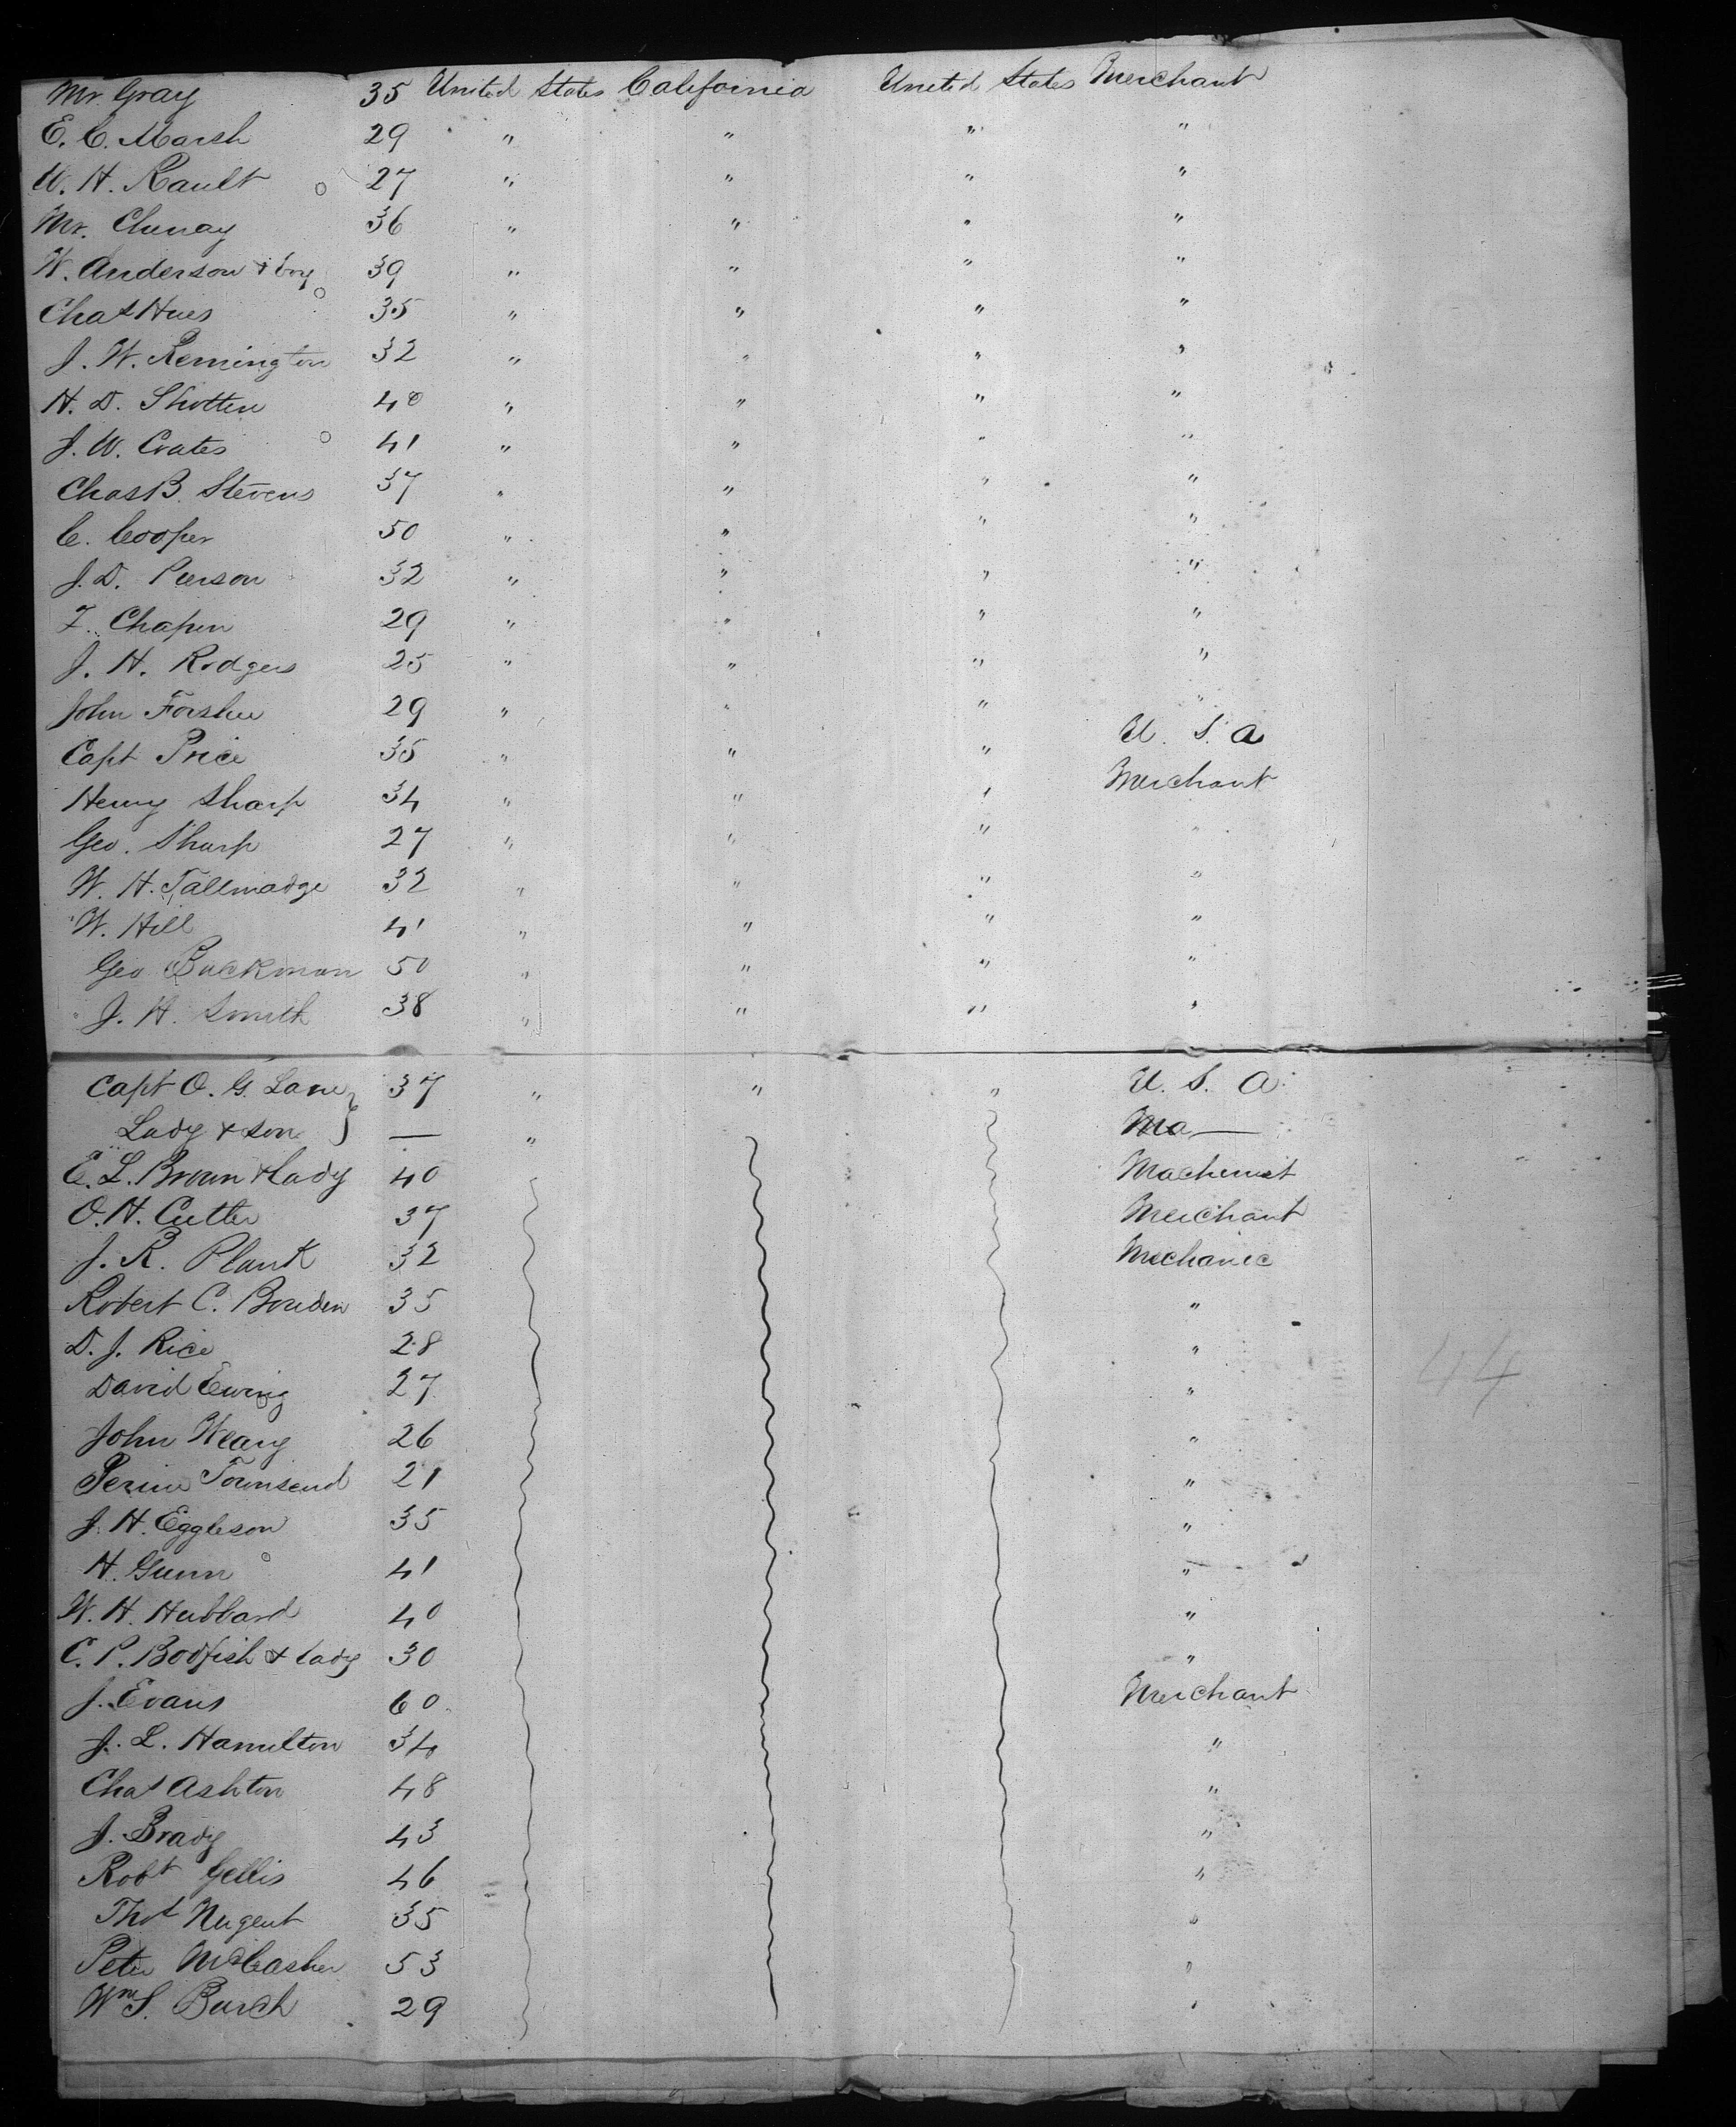 Mr. Gray 35 United States California United States Merchant
E. C. Marsh 29 " " " "
W. H. Rault 27 " " " "
Mr. Chenay 36 " " " "
W. Anderson & boy 39 " " " "
Chas Hues 35 " " " "
J. W. Remington 32 " " " "
H. D. Shotten 40 " " " "
J. W. Coates 41 " " " "
Chas B. Stevens 37 " " " "
C. Cooper 50 " " " "
J. D. Pierson 32 " " " "
F. Chapin 29 " " " "
J. H. Rodgers 25 " " " "
John Forshee 29 " " " "
Capt Price 35 " " " U. S. A
Henry Sharp 34 " " " Merchant
Geo. Sharp 27 " " " "
W. H. Tallmadge 32 " " " "
W. Hill 41 " " " "
Geo Buckman 50 " " " "
J. H. Smith 38 " " " "
Capt O. G. Lane } 37 " " " U. S. A.
Lady & son — " Ma—
E. L. Brown & lady 40 Machinist
O. H. Cutter 37 Merchant
J. R. Plank 32 Mechanic
Robert C. Bowden 35 "
D. J. Rice 28 "
David Ewing 27 "
John Weary 26 "
Perine Townsend 21 "
J. H. Eggleson 35 "
H. Gunn 41 "
W. H. Hubbard 40 "
C. P. Bodfish & lady 30 "
J. Evans 60 Merchant
J. L. Hamilton 34 "
Chas Ashton 48 "
J. Brady 43 "
Robt Gellis 46 "
Thos Nugent 35 "
Peter McCasher 53 "
Wm S. Burch 29 "
44